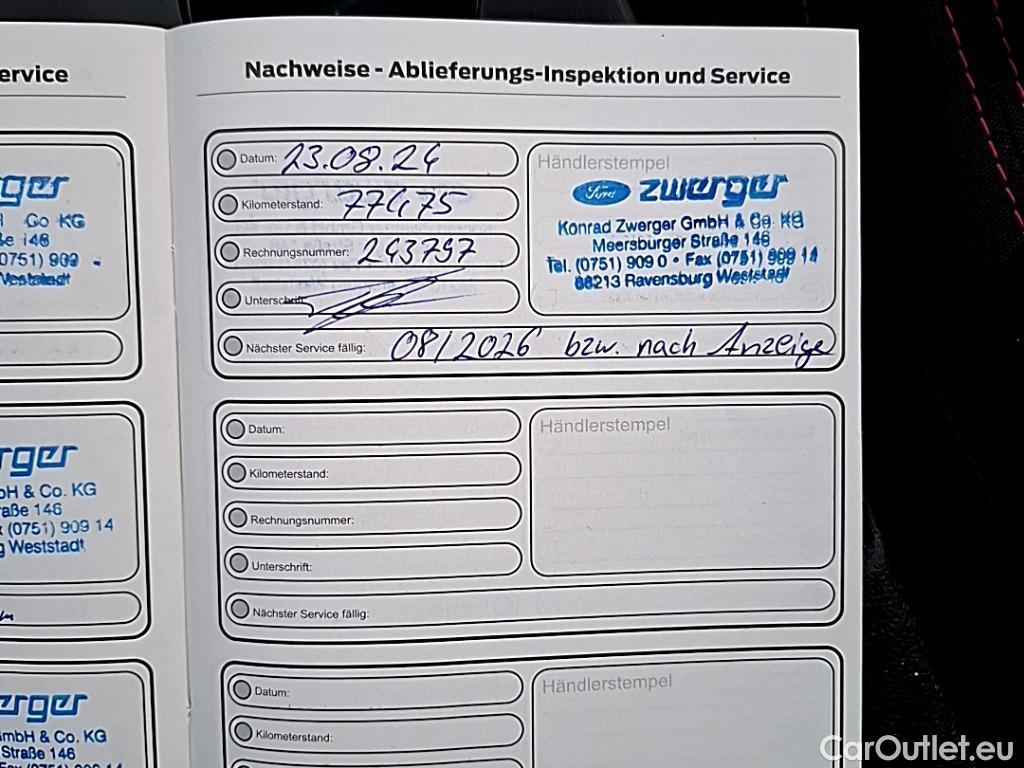 ervice
rger
Go KG
ße 146
0751) 909
Weststadt
rger
bH & Co. KG
raße 146
x (0751) 909 14
g Weststadt
erger
mbH & Co. KG
Straße 146
Nachweise - Ablieferungs-Inspektion und Service
Datum: 23.08.24
Kilometerstand: 77475
Rechnungsnummer: 243797
Unterschrift:
Nächster Service fällig: 08/2026 bzw. nach Anzeige
Händlerstempel
Ford zwerger
Konrad Zwerger GmbH & Co. KG
Meersburger Straße 146
Tel. (0751) 909 0 • Fax (0751) 909 14
88213 Ravensburg Weststadt
Datum:
Kilometerstand:
Rechnungsnummer:
Unterschrift:
Nächster Service fällig:
Händlerstempel
Datum:
Kilometerstand:
Händlerstempel
CarOutlet.eu